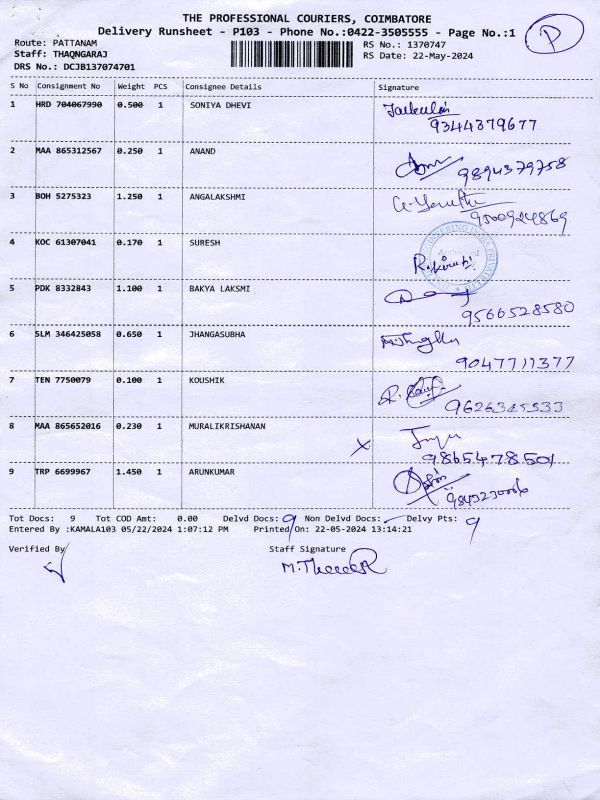 THE PROFESSIONAL COURIERS, COIMBATORE
Delivery Runsheet - P103 - Phone No.:0422-3505555 - Page No.:1
P
Route: PATTANAM
RS No.: 1370747
Staff: THAQNGARAJ
RS Date: 22-May-2024
DRS No.: DCJB137074701
S No Consignment No Weight PCS Consignee Details Signature
1 HRD 704067990 0.500 1 SONIYA DHEVI
9344379677
2 MAA 865312567 0.250 1 ANAND
9894379758
3 BOH 5275323 1.250 1 ANGALAKSHMI
9500924869
4 KOC 61307041 0.170 1 SURESH
5 PDK 8332843 1.100 1 BAKYA LAKSMI
9566528580
6 SLM 346425058 0.650 1 JHANGASUBHA
9047711377
7 TEN 7750079 0.100 1 KOUSHIK
8 MAA 865652016 0.230 1 MURALIKRISHANAN
X
9865478501
9 TRP 6699967 1.450 1 ARUNKUMAR
Tot Docs: 9 Tot COD Amt: 0.00 Delvd Docs: 9 Non Delvd Docs: Delvy Pts: 9
Entered By :KAMALA103 05/22/2024 1:07:12 PM Printed On: 22-05-2024 13:14:21
Verified By Staff Signature